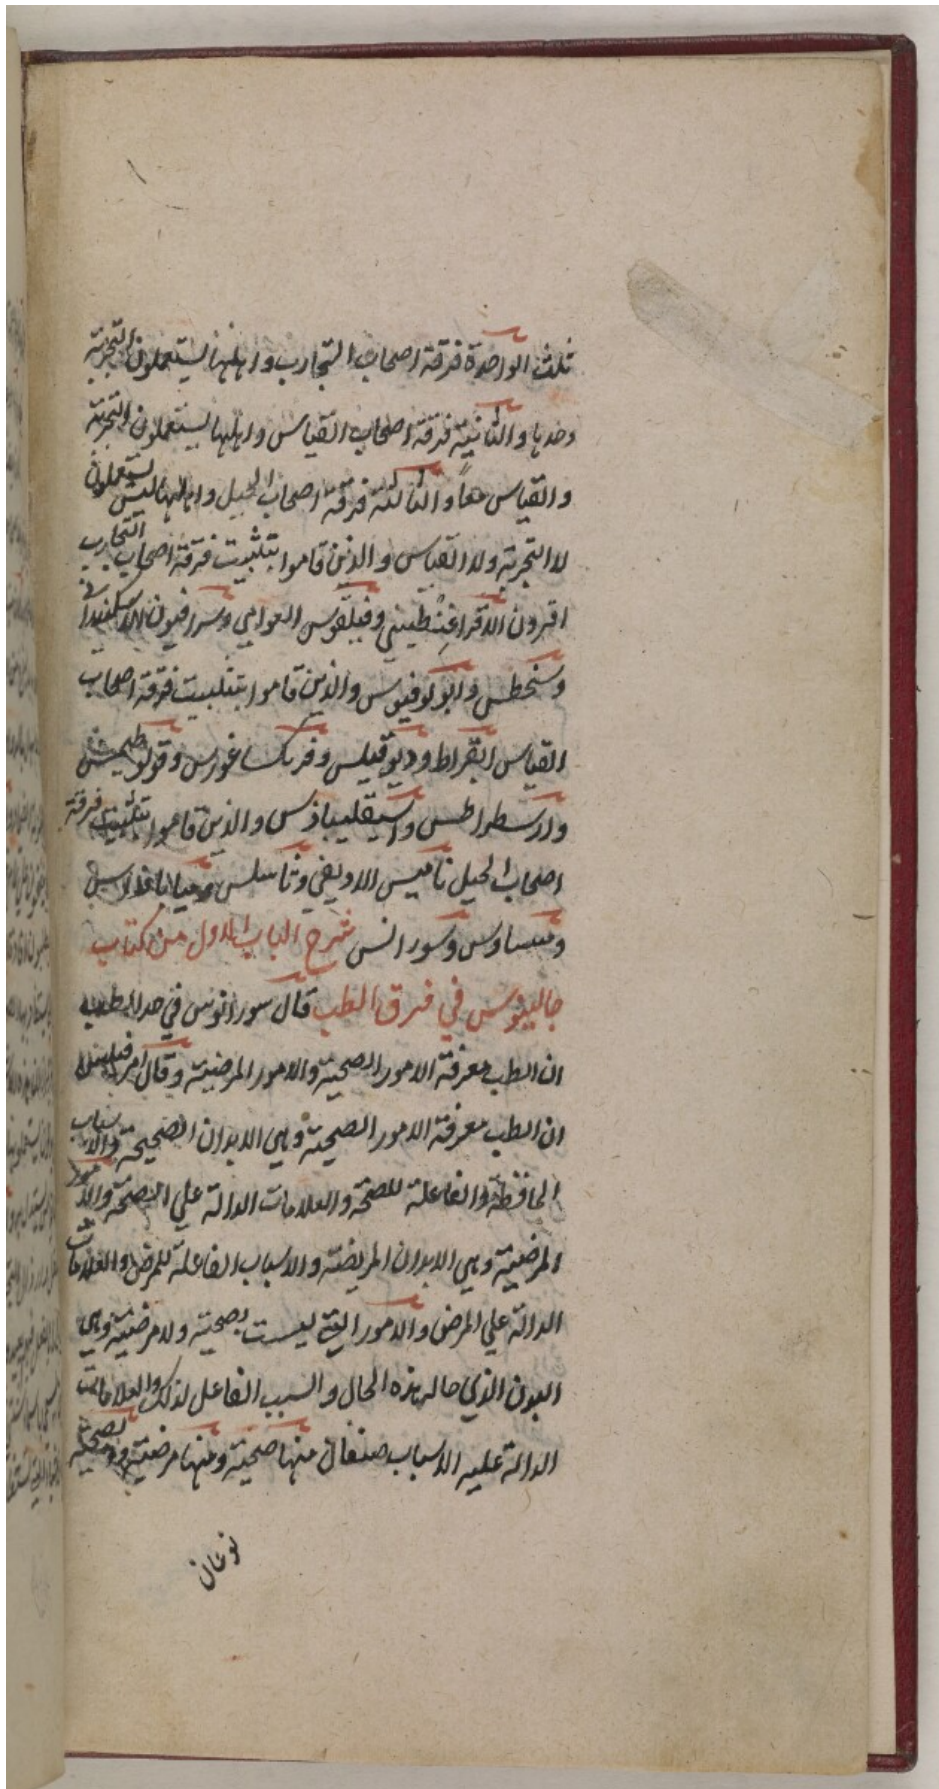 ثلث الواحدة فرقة اصحاب التجارب واهلها يستعملون التجربة
وحدها والثانية فرقة اصحاب القياس واهلها يستعملون التجربة
والقياس معًا والثالثة فرقة اصحاب الحيل واهلها ليس يستعملون
لا التجربة ولا القياس والذين قاموا بتثبيت فرقة اصحاب التجارب
اقرون الاقراغنطيني وفيلقوس العوامي وسرافيون الاسكندراني
وسنحطس وابولونيوس والذين قاموا بتثبيت فرقة اصحاب
القياس ابقراط وديوقيلس وفركساغورس وقولوطيمس
وارسطراطس واسقليباذس والذين قاموا بتثبيت فرقة
اصحاب الحيل ثامیس الادويقي وثاسلس
ومنساوس وسورانس شرح الباب الاول من كتاب
جالينوس في فرق الطب قال سورانوس في حد الطب
ان الطب معرفة الامور الصحية والامور المرضية وقال ايرفيلس
ان الطب معرفة الامور الصحية وهي الابدان الصحيحة والاسباب
الحافظة والفاعلة للصحة والعلامات الدالة علي الصحة والامور
المرضية وهي الابدان المريضة والاسباب الفاعلة للمرض والعلامات
الدالة علي المرض والامور التي ليست بصحية ولا مرضية وهي
البدن الذي حاله هذه الحال والسبب الفاعل لذلك والعلامات
الدالة عليه الاسباب صنفان منها صحية ومنها مرضية والصحية
نوعان